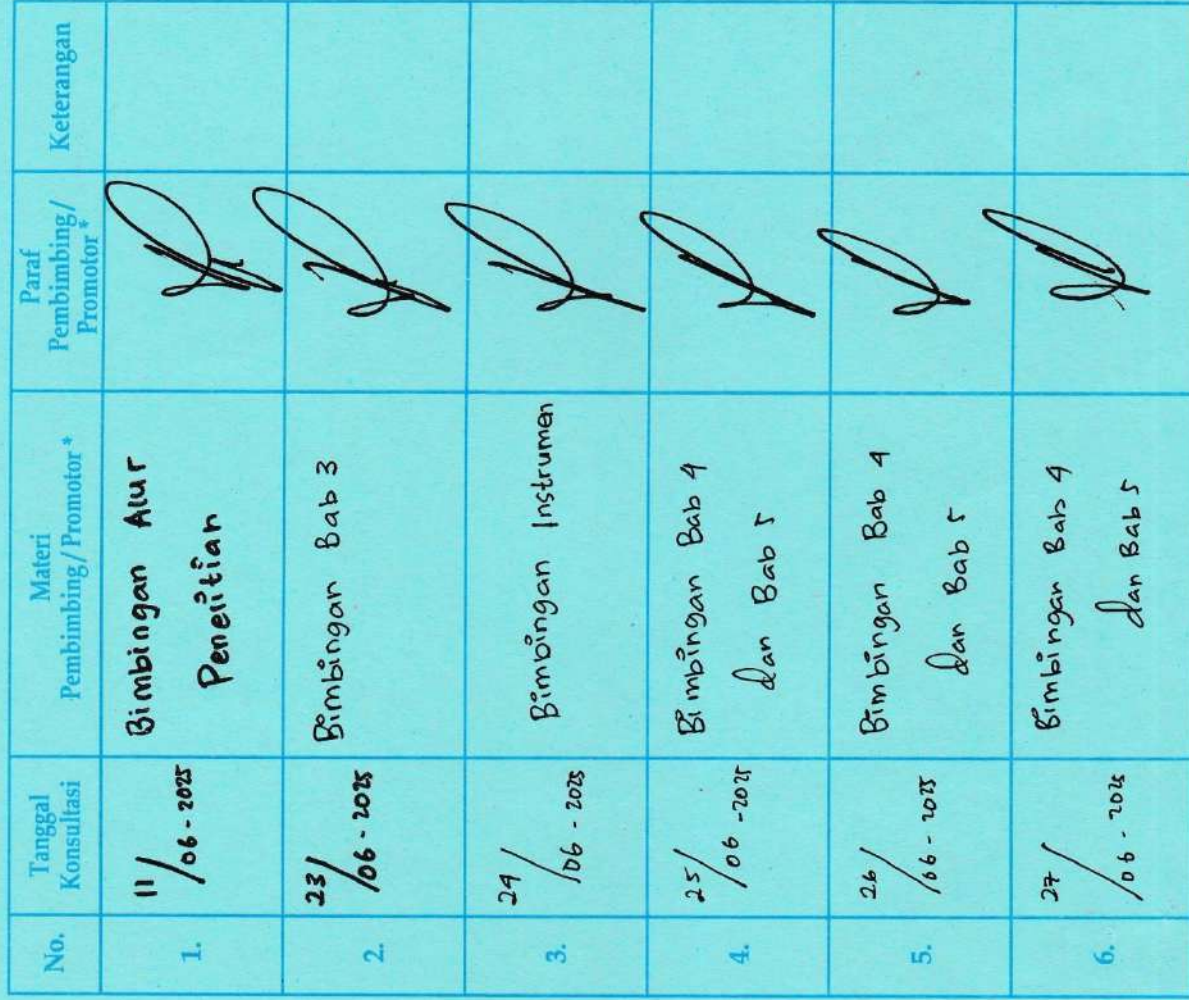 No.
Tanggal
Konsultasi
Materi
Pembimbing / Promotor *
Paraf
Pembimbing /
Promotor *
Keterangan
1.
11/06-2025
Bimbingan Alur
Penelitian
2.
23/06-2025
Bimbingan Bab 3
3.
24/06-2025
Bimbingan Instrumen
4.
25/06-2025
Bimbingan Bab 4
dan Bab 5
5.
26/06-2025
Bimbingan Bab 4
dan Bab 5
6.
27/06-2025
Bimbingan Bab 4
dan Bab 5